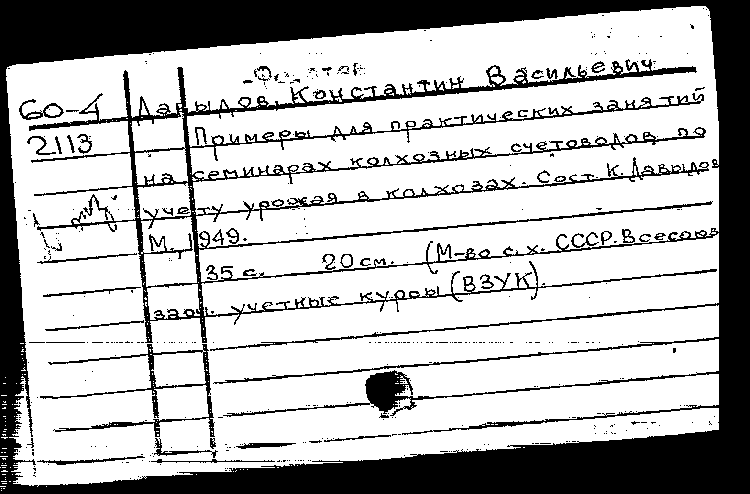 60-4 Давыдов, Константин Васильевич
2113 Примеры для практических занятий
на семинарах колхозных счетоводов по
учету урожая в колхозах. Сост. К. Давыдов
М., 1949.
35 с. 20 см. (М-во с. х. СССР. Всесоюз
заоч. учетные курсы (ВЗУК).